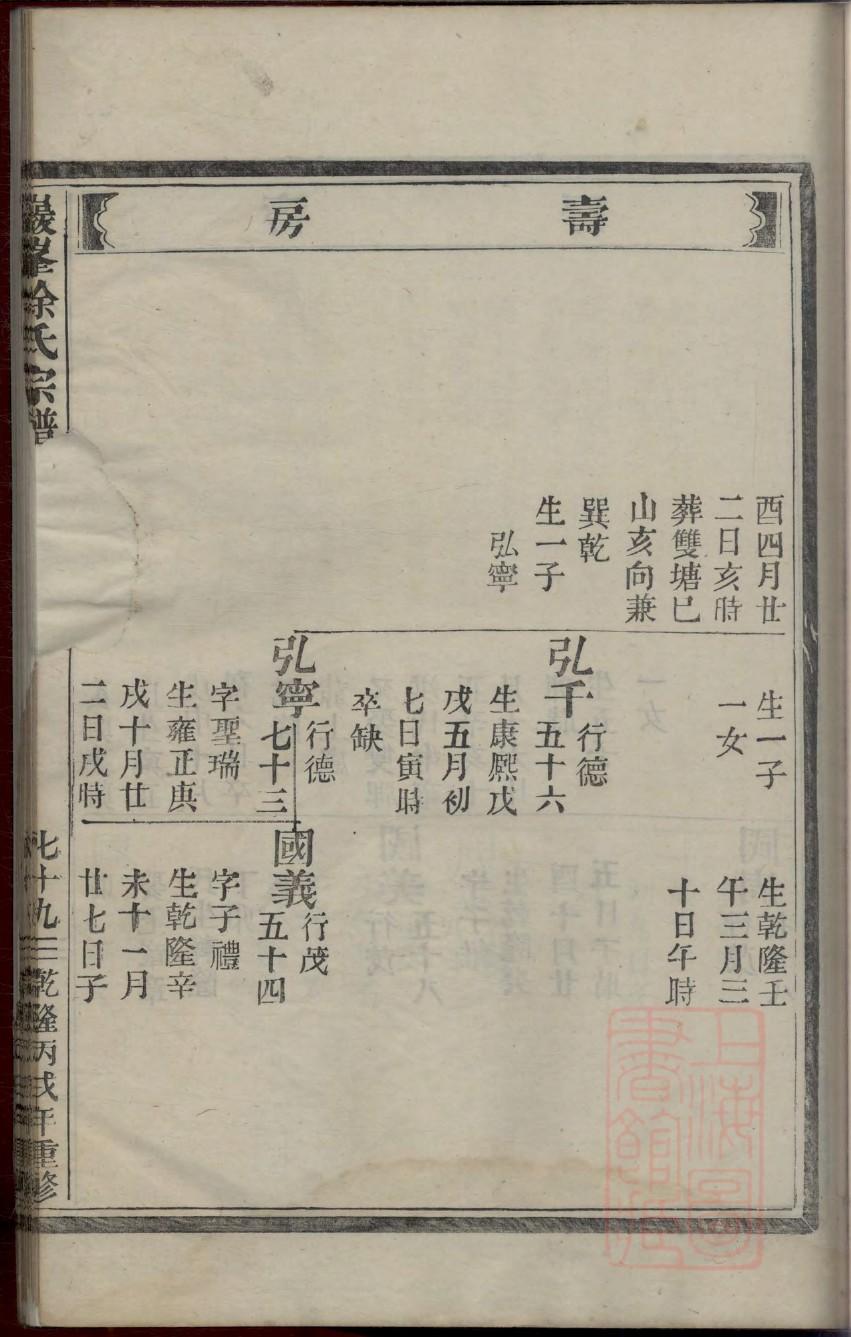 壽房
酉四月廿
二日亥時
葬雙塘巳
山亥向兼
巽乾
生一子
弘寧
生一子
一女
弘千
行德
五十六
生康熙戊
戌五月初
七日寅時
卒缺
弘寧
行德
七十三
字聖瑞
生雍正庚
戌十月廿
二日戌時
生乾隆壬
午三月三
十日午時
國義
行茂
五十四
字子禮
生乾隆辛
未十一月
廿七日子
巖峯徐氏宗譜
七十九
乾隆丙戌年重修
上海圖書館藏